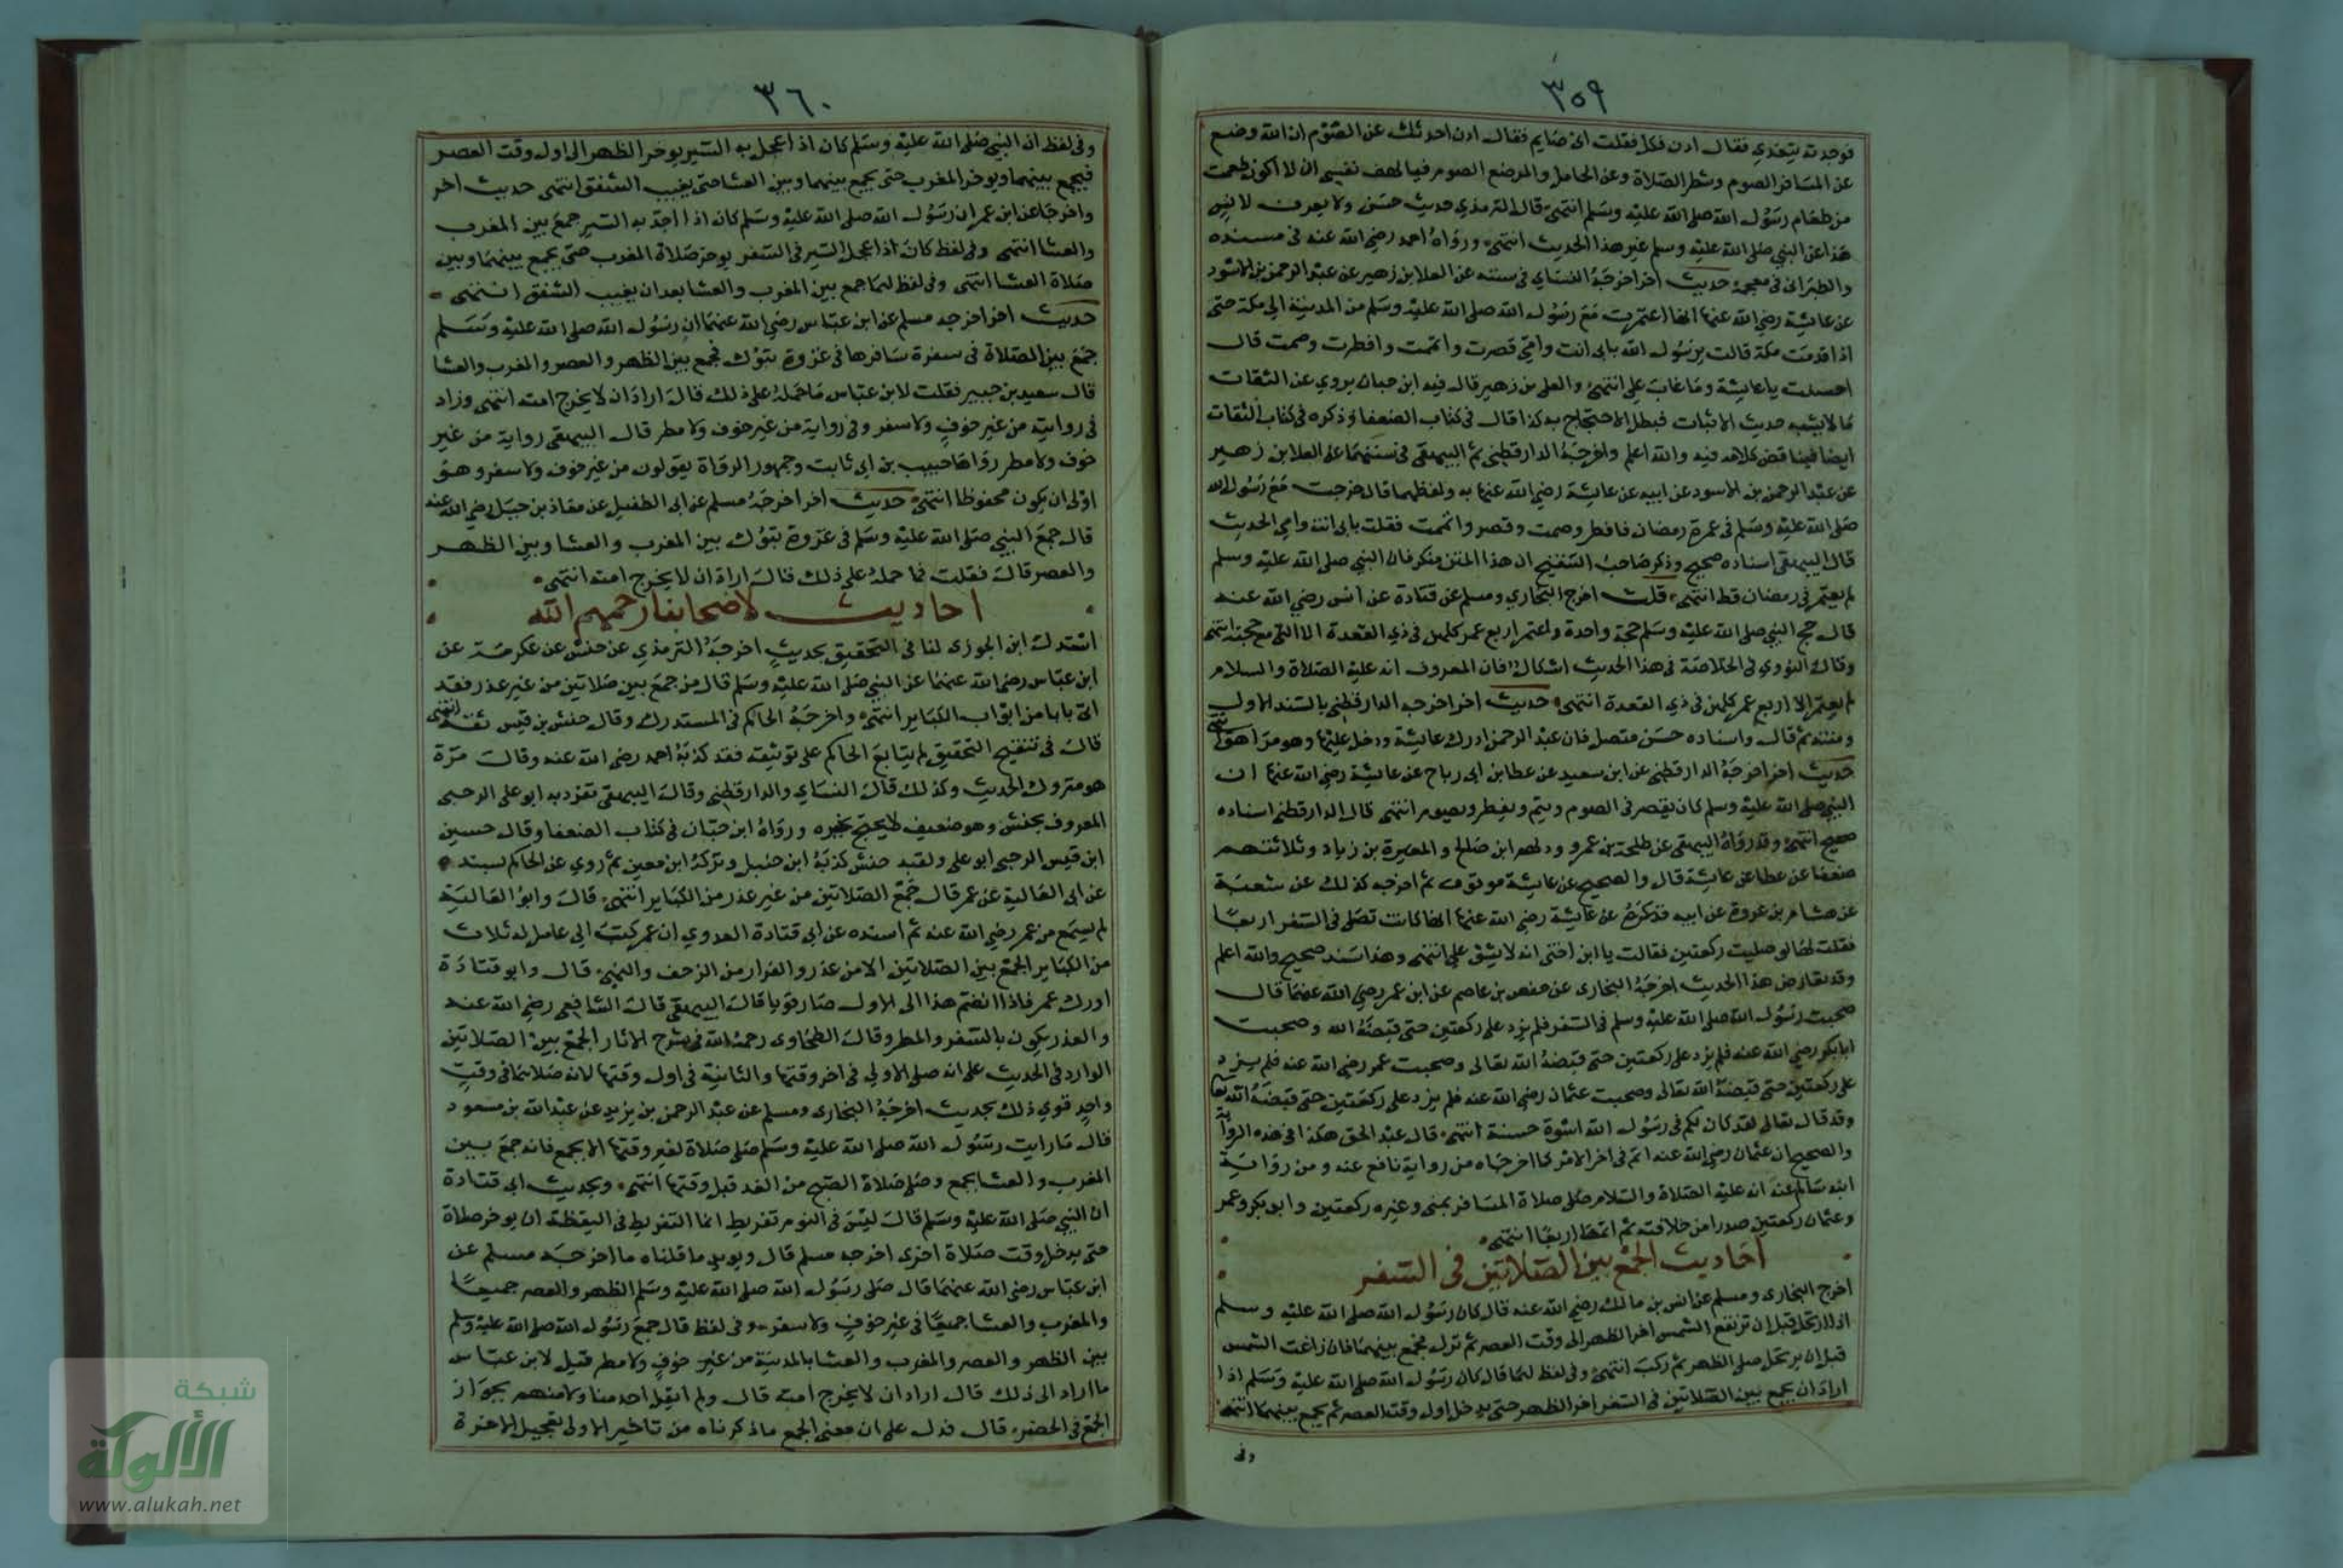 ٣٥٩
فوجدته يتغدي فقال ادن فكل فقلت اني صايم فقال ادن احدثك عن الصوم ان الله وضع
عن المسافر الصوم وشطر الصلاة وعن الحامل والمرضع الصوم فيا لهف نفسي ان لا اكون طعمت
من طعام رسول الله صلى الله عليه وسلم انتهى قال الترمذي حديث حسن ولا يعرف لانس
هذا عن النبي صلى الله عليه وسلم غير هذا الحديث انتهى ورواه احمد رضي الله عنه في مسنده
والطبراني في معجمه حديث اخر اخرجه النساي في سننه عن العلا بن زهير عن عبد الرحمن بن الاسود
عن عايشة رضي الله عنها انها اعتمرت مع رسول الله صلى الله عليه وسلم من المدينة الى مكة حتى
اذا قدمت مكة قالت يرسول الله بابي انت وامي قصرت واتممت وافطرت وصمت قال
احسنت يا عايشة وما غاب علي انتهى والعلى بن زهير قال فيه ابن حبان يروي عن الثقات
ما لا يشبه حديث الاثبات فبطل الاحتجاج به كذا قال في كتاب الضعفا وذكره في كتاب الثقات
ايضا فيناقض كلامه فيه والله اعلم واخرجه الدارقطني ثم البيهقي في سننهما عن العلا بن زهير
عن عبد الرحمن بن الاسود عن ابيه عن عايشة رضي الله عنها به ولفظهما قال خرجت مع رسول الله
صلى الله عليه وسلم في عمرة رمضان فافطر وصمت وقصر واتممت فقلت بابي انت وامي الحديث
قال البيهقي اسناده صحيح وذكر صاحب التنقيح ان هذا المتن منكر فان النبي صلى الله عليه وسلم
لم يعتمر في رمضان قط انتهى قلت اخرج البخاري ومسلم عن قتادة عن انس رضي الله عنه
قال حج النبي صلى الله عليه وسلم حجة واحدة واعتمر اربع عمر كلهن في ذي القعدة الا التي مع حجته انتهى
وقال النووي في الخلاصة في هذا الحديث اشكال فان المعروف انه عليه الصلاة والسلام
لم يعتمر الا اربع عمر كلهن في ذي القعدة انتهى حديث اخر اخرجه الدارقطني بالسند الاول
ومتنه ثم قال واسناده حسن متصل فان عبد الرحمن ادرك عايشة ودخل عليها وهو مراهق انتهى
حديث اخر اخرجه الدارقطني عن ابن سعيد عن عطا بن ابي رباح عن عايشة رضي الله عنها ان
النبي صلى الله عليه وسلم كان يقصر في الصوم ويتم ويفطر ويصوم انتهى قال الدارقطني اسناده
صحيح انتهى وقد رواه البيهقي عن طلحة بن عمرو ودلهم ابن صالح والمغيرة بن زياد وثلاثتهم
ضعفا عن عطا عن عايشة قال والصحيح عن عايشة موقوف ثم اخرجه كذلك عن شعبة
عن هشام بن عروة عن ابيه عن عايشة رضي الله عنها انها كانت تصلى في السفر اربعا
فقلت لها لو صليت ركعتين فقالت يا ابن اختي انه لا يشق علي انتهى وهذا سند صحيح والله اعلم
وقد يعارض هذا الحديث اخرجه البخارى عن حفص بن عاصم عن ابن عمر رضي الله عنهما قال
صحبت رسول الله صلى الله عليه وسلم في السفر فلم يزد على ركعتين حتى قبضه الله وصحبت
ابا بكر رضي الله عنه فلم يزد على ركعتين حتى قبضه الله تعالى وصحبت عمر رضي الله عنه فلم يزد
على ركعتين حتى قبضه الله تعالى وصحبت عثمان رضي الله عنه فلم يزد على ركعتين حتى قبضه الله تعا
وقد قال تعالى لقد كان لكم في رسول الله اسوة حسنة انتهى قال عبد الحق هكذا في هذه الرواية
والصحيح ان عثمان رضي الله عنه اتم في اخر الامر كما اخرجاه من رواية نافع عنه ومن رواية
ابنه سالم عنه انه عليه الصلاة والسلام صلى صلاة المسافر بمنى وغيره ركعتين وابو بكر وعمر
وعثمان ركعتين صدرا من خلافته ثم اتمها اربعا انتهى
احاديث الجمع بين الصلاتين في السفر
اخرج البخاري ومسلم عن انس بن مالك رضي الله عنه قال كان رسول الله صلى الله عليه وسلم
اذا ارتحل قبل ان ترتفع الشمس اخر الظهر الى وقت العصر ثم نزل فجمع بينهما فان زاغت الشمس
قبل ان يرتحل صلى الظهر ثم ركب انتهى وفي لفظ لهما قال كان رسول الله صلى الله عليه وسلم اذا
اراد ان يجمع بين الصلاتين في السفر اخر الظهر حتى يدخل اول وقت العصر ثم يجمع بينهما انتهى
وفى
٣٦٠
وفي لفظ ان النبي صلى الله عليه وسلم كان اذا عجل به السير يوخر الظهر الى اول وقت العصر
فيجمع بينهما ويوخر المغرب حتى يجمع بينهما وبين العشا حتى يغيب الشفق انتهى حديث اخر
واخرجا عن ابن عمر ان رسول الله صلى الله عليه وسلم كان اذا اجد به السير جمع بين المغرب
والعشا انتهى وفي لفظ كان اذا عجل السير في السفر يوخر صلاة المغرب حتى يجمع بينهما وبين
صلاة العشا انتهى وفي لفظ لهما جمع بين المغرب والعشا بعد ان يغيب الشفق انتهى
حديث اخر اخرجه مسلم عن ابن عباس رضي الله عنهما ان رسول الله صلى الله عليه وسلم
جمع بين الصلاة في سفرة سافرها في غزوة تبوك فجمع بين الظهر والعصر والمغرب والعشا
قال سعيد بن جبير فقلت لابن عباس ما حمله على ذلك قال اراد ان لا يخرج امته انتهى وزاد
في رواية من غير خوف ولا سفر وفي رواية من غير خوف ولا مطر قال البيهقى رواية من غير
خوف ولا مطر رواها حبيب بن ابي ثابت وجمهور الرواة يقولون من غير خوف ولا سفر وهو
اولى ان يكون محفوظا انتهى حديث اخر اخرجه مسلم عن ابي الطفيل عن معاذ بن جبل رضي الله عنه
قال جمع النبي صلى الله عليه وسلم في غزوة تبوك بين المغرب والعشا وبين الظهر
والعصر قال فقلت فما حمله على ذلك فقال اراد ان لا يخرج امته انتهى
احاديث لاصحابنا رحمهم الله
استدل ابن الجوزى لنا في التحقيق بحديث اخرجه الترمذي عن حنش عن عكرمة عن
ابن عباس رضي الله عنهما عن النبي صلى الله عليه وسلم قال من جمع بين صلاتين من غير عذر فقد
اتى بابا من ابواب الكباير انتهى واخرجه الحاكم في المستدرك وقال حنش بن قيس ثقة انتهى
قال في تنقيح التحقيق لم يتابع الحاكم على توثيقه فقد كذبه احمد رضي الله عنه وقال مرة
هو متروك الحديث وكذلك قال النساي والدارقطني وقال البيهقى تفرد به ابو على الرحبى
المعروف بحنش وهو ضعيف لا يحتج بخبره ورواه ابن حبان في كتاب الضعفا وقال حسين
ابن قيس الرحبي ابو على ولقبه حنش كذبه ابن حنبل وتركه ابن معين ثم روي عن الحاكم بسنده
عن ابي العالية عن عمر قال جمع الصلاتين من غير عذر من الكباير انتهى قال وابو العالية
لم يسمع من عمر رضي الله عنه ثم اسنده عن ابي قتادة العدوي ان عمر كتب الى عامل له ثلاث
من الكباير الجمع بين الصلاتين الا من عذر والفرار من الزحف والنهبى قال وابو قتادة
ادرك عمر فاذا انضم هذا الى الاول صار قويا قال البيهقى قال الشافعي رضي الله عنه
والعذر يكون بالسفر والمطر وقال الطحاوى رحمه الله في شرح الاثار الجمع بين الصلاتين
الوارد في الحديث على انه صلى الاولى في اخر وقتها والثانية في اول وقتها لانه صلاهما في وقت
واحد قوي ذلك بحديث اخرجه البخارى ومسلم عن عبد الرحمن بن يزيد عن عبد الله بن مسعود
قال ما رايت رسول الله صلى الله عليه وسلم صلى صلاة لغير وقتها الا بجمع فانه جمع بين
المغرب والعشا بجمع وصلى صلاة الصبح من الغد قبل وقتها انتهى وبحديث ابي قتادة
ان النبي صلى الله عليه وسلم قال ليس في النوم تفريط انما التفريط في اليقظة ان يوخر صلاة
حتى يدخل وقت صلاة اخرى اخرجه مسلم قال ويويد ما قلناه ما اخرجه مسلم عن
ابن عباس رضي الله عنهما قال صلى رسول الله صلى الله عليه وسلم الظهر والعصر جميعا
والمغرب والعشا جميعا في غير خوف ولا سفر وفي لفظ قال جمع رسول الله صلى الله عليه وسلم
بين الظهر والعصر والمغرب والعشا بالمدينة من غير خوف ولا مطر قيل لابن عباس
ما اراد الى ذلك قال اراد ان لا يخرج امته قال ولم يقل احد منا ولا منهم بجواز
الجمع في الحضر قال فدل على ان معنى الجمع ما ذكرناه من تاخير الاولى وتعجيل الاخرة
شبكة
الألوكة
www.alukah.net